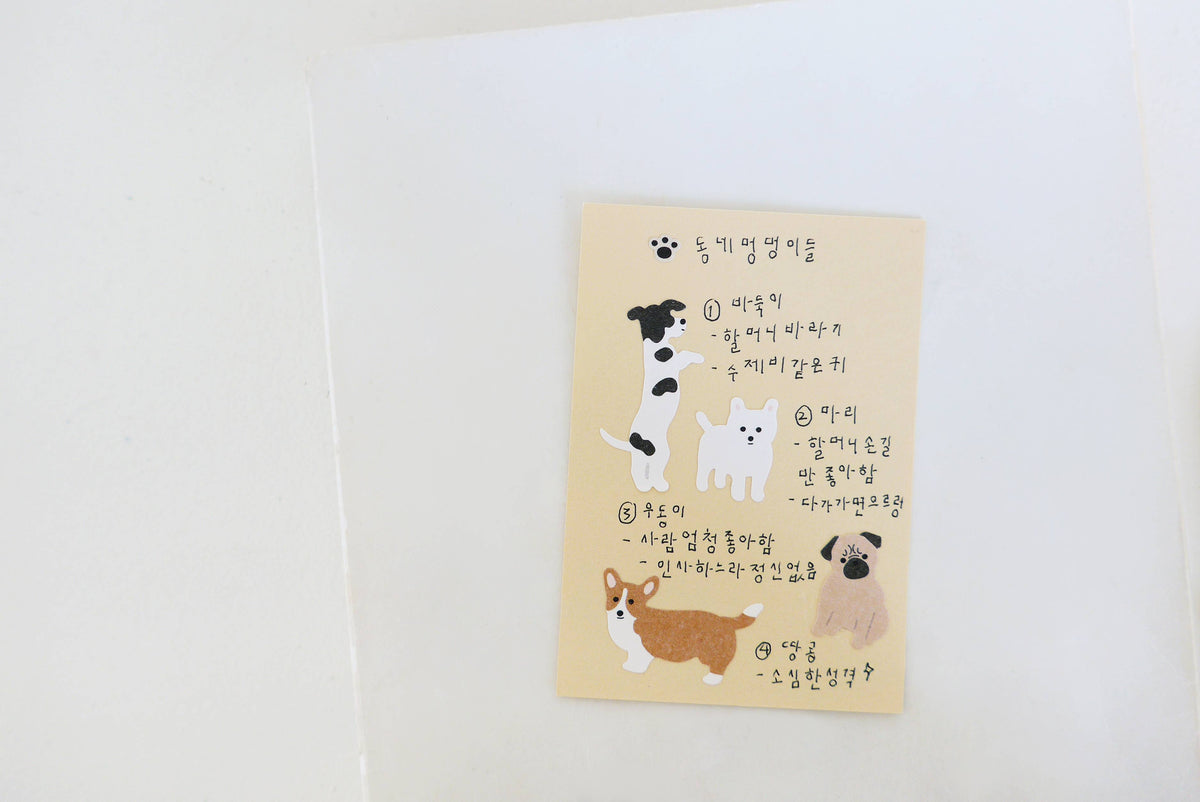 동네 멍멍이들
① 바둑이
- 할머니 바라기
- 수제비 같은 귀
② 마리
- 할머니 손길
만 좋아함
- 다가가면 으르렁
③ 우동이
- 사람 엄청 좋아함
- 인사하느라 정신없음
④ 땅콩
- 소심한 성격